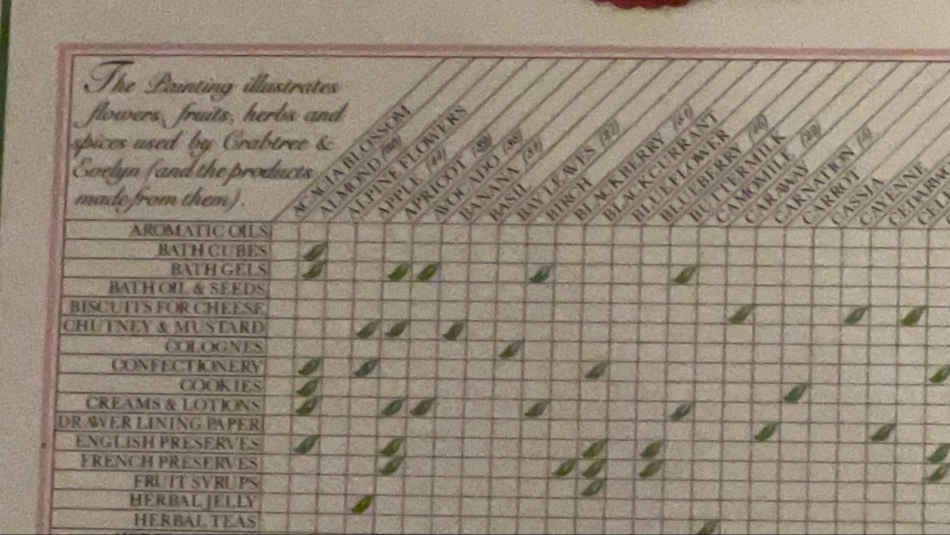 The Painting illustrates
flowers, fruits, herbs and
spices used by Crabtree &
Evelyn (and the products
made from them).
ACACIA BLOSSOM
ALMOND
ALPINE FLOWERS
APPLE
APRICOT
AVOCADO
BANANA
BASIL
BAY LEAVES
BIRCH
BLACKBERRY
BLACKCURRANT
BLUEFLOWER
BLUEBERRY
BUTTERMILK
CAMOMILE
CARAWAY
CARNATION
CARROT
CASSIA
CAYENNE
AROMATIC OILS
BATH CUBES
BATH GELS
BATH OIL & SEEDS
BISCUITS FOR CHEESE
CHUTNEY & MUSTARD
COLOGNES
CONFECTIONERY
COOKIES
CREAMS & LOTIONS
DRAWER LINING PAPER
ENGLISH PRESERVES
FRENCH PRESERVES
FRUIT SYRUPS
HERBAL JELLY
HERBAL TEAS